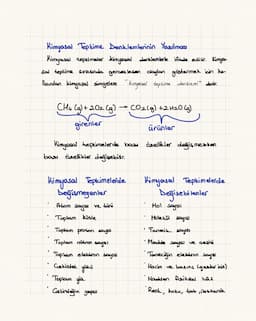 Kimyasal Tepkime Denklemlerinin Yazılması
Kimyasal tepkimeler kimyasal denklemlerle ifade edilir. Kimya-
sal tepkime sırasında gerçekleşen olayları göstermek için kul-
lanılan kimyasal simgelere "kimyasal tepkime denklemi" denir.
CH₄ (g) + 2O₂ (g) → CO₂ (g) + 2H₂O (g)
girenler
ürünler
Kimyasal tepkimelerde bazı özellikler değişmezken
bazı özellikler değişebilir.
Kimyasal Tepkimelerde
Değişmeyenler
· Atom sayısı ve türü
· Toplam kütle
· Toplam proton sayısı
· Toplam nötron sayısı
· Toplam elektron sayısı
· Çekirdek yükü
· Toplam yük
· Çekirdeğin yapısı
Kimyasal Tepkimelerde
Değişebilenler
· Mol sayısı
· Molekül sayısı
· Tanecik sayısı
· Madde sayısı ve çeşidi
· Taneciğin elektron sayısı
· Hacim ve basınç (gazlar için)
· Maddenin fiziksel hali
· Renk, koku, tat, iletkenlik